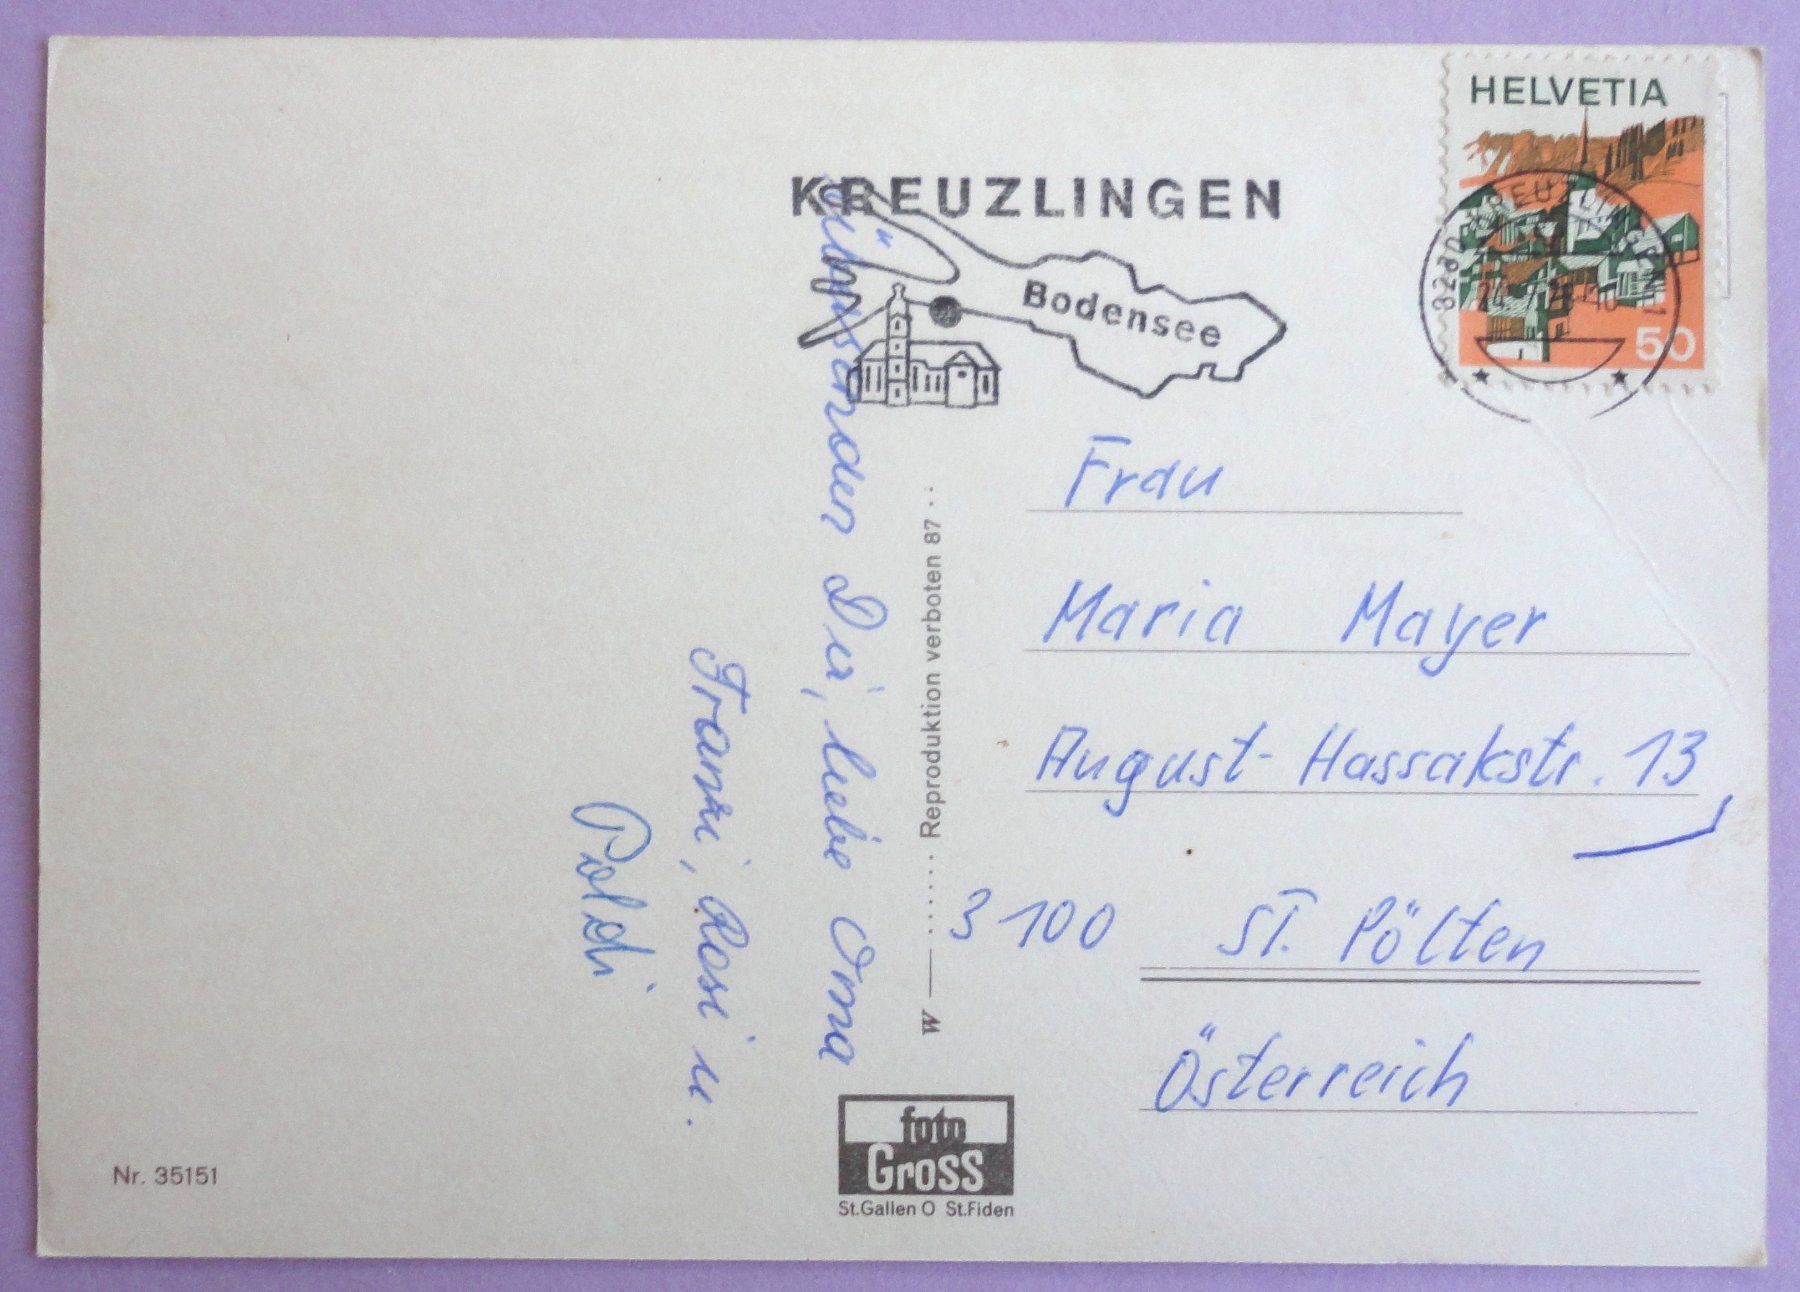 HELVETIA
50
KREUZLINGEN
Bodensee
8280 KREUZLINGEN 1
wünschen Dir, liebe Oma
Franzi, Rosi u.
Poldi
Frau
Maria Mayer
August-Hassakstr. 13
3100 St. Pölten
Österreich
W Reproduktion verboten 87
foto
Gross
St.Gallen O St.Fiden
Nr. 35151